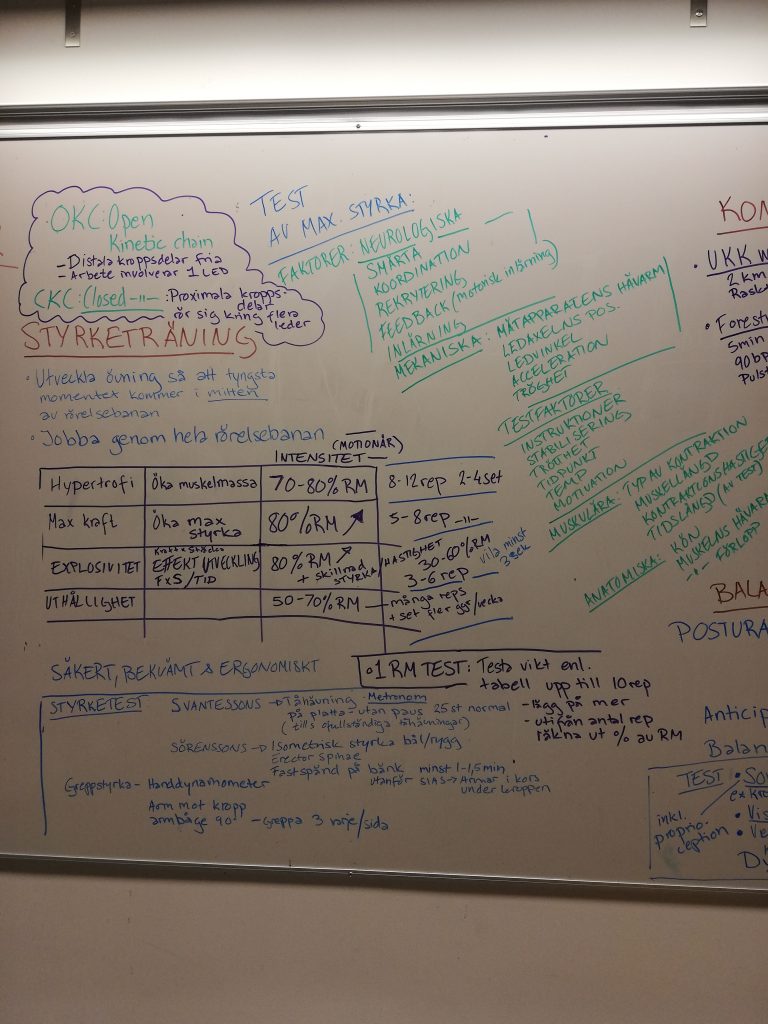 OKC: Open
Kinetic chain
- Distala kroppsdelar fria
- Arbete involverar 1 LED
CKC: Closed -11- : Proximala kropps-
delar
rör sig kring flera
leder
STYRKETRÄNING
• Utveckla övning så att tyngsta
momentet kommer i mitten
av rörelsebanan
• Jobba genom hela rörelsebanan
(MOTIONÄR)
INTENSITET
Hypertrofi öka muskelmassa 70-80% RM 8-12 rep 2-4 set
Max kraft öka max styrka 80% RM ↗ 5-8 rep -11-
EXPLOSIVITET
EFFEKTUTVECKLING
F×S/TID
80% RM ↗
+ skillnad
STYRKA/HASTIGHET
30-60% RM
3-6 rep
vila minst
3 sek
UTHÅLLIGHET 50-70% RM många reps
+ set fler ggr/vecka
SÄKERT, BEKVÄMT & ERGONOMISKT
• 1 RM TEST: Testa vikt enl.
tabell upp till 10 rep
- lägg på mer
- utifrån antal rep
räkna ut % av RM
STYRKETEST SVANTESSONS → Tåhävning Metronom
på platta - utan paus 25 st normal
(tills ofullständiga tåhävningar)
SÖRENSSONS → Isometrisk styrka bål/rygg
Erector Spinae
Fastspänd på bänk minst 1-1,5 min
utanför SIAS → Armar i kors
under kroppen
Greppstyrka - Handdynamometer
Arm mot kropp
armbåge 90° - Greppa 3 varje/sida
TEST
AV MAX. STYRKA:
FAKTORER: NEUROLOGISKA
SMÄRTA
KOORDINATION
REKRYTERING
FEEDBACK (motorisk inlärning)
INLÄRNING
MEKANISKA: MÄTAPPARATENS HÄVARM
LEDAXELNS POS.
LEDVINKEL
ACCELERATION
TRÖGHET
TESTFAKTORER
INSTRUKTIONER
STABILISERING
TRÖTTHET
TIDPUNKT
TEMP
MOTIVATION
MUSKULÄRA: TYP AV KONTRAKTION
MUSKELLÄNGD
KONTRAKTIONSHASTIGHE
TIDSLÄNGD (AV TEST)
ANATOMISKA: KÖN
MUSKELNS HÄVARM
-11- FÖRLOPP
KON
• UKK W
2 km
Rask
• Forest
5 min
90 bp
Puls
BALA
POSTURA
Anticip
Balan
TEST
inkl.
proprio-
ception
• So
ex kr
• Vis
• Ve